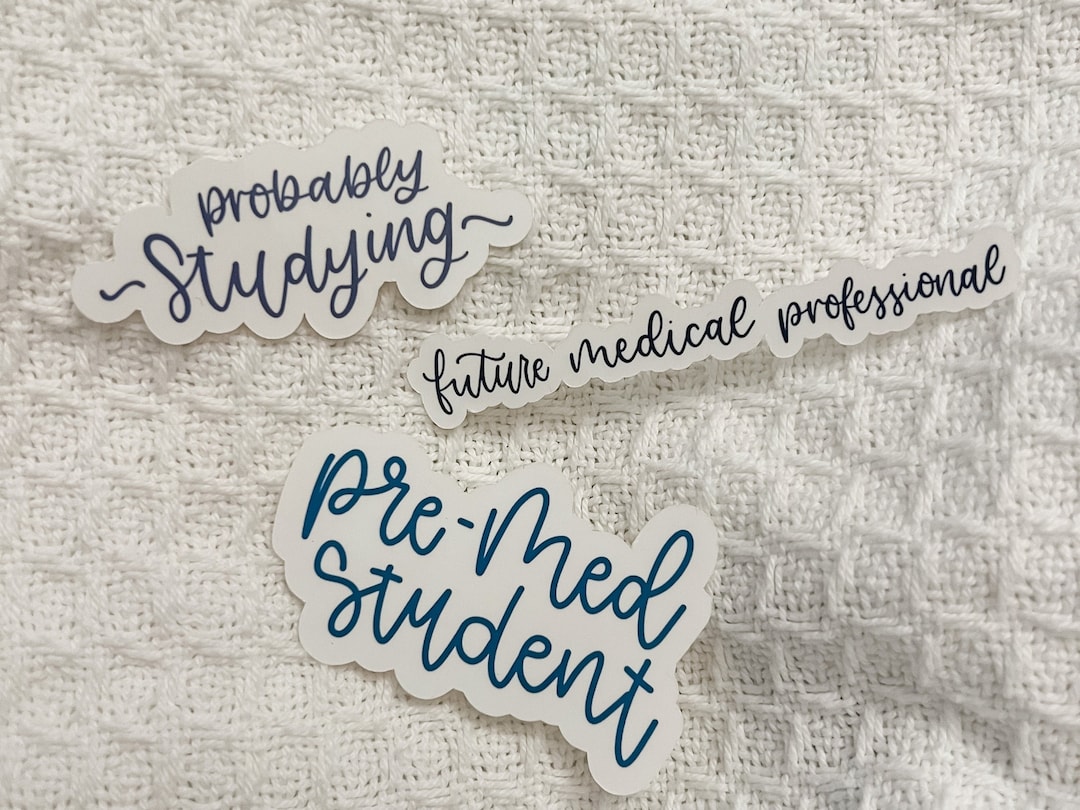 probably
~Studying~
future medical professional
Pre-Med
Student